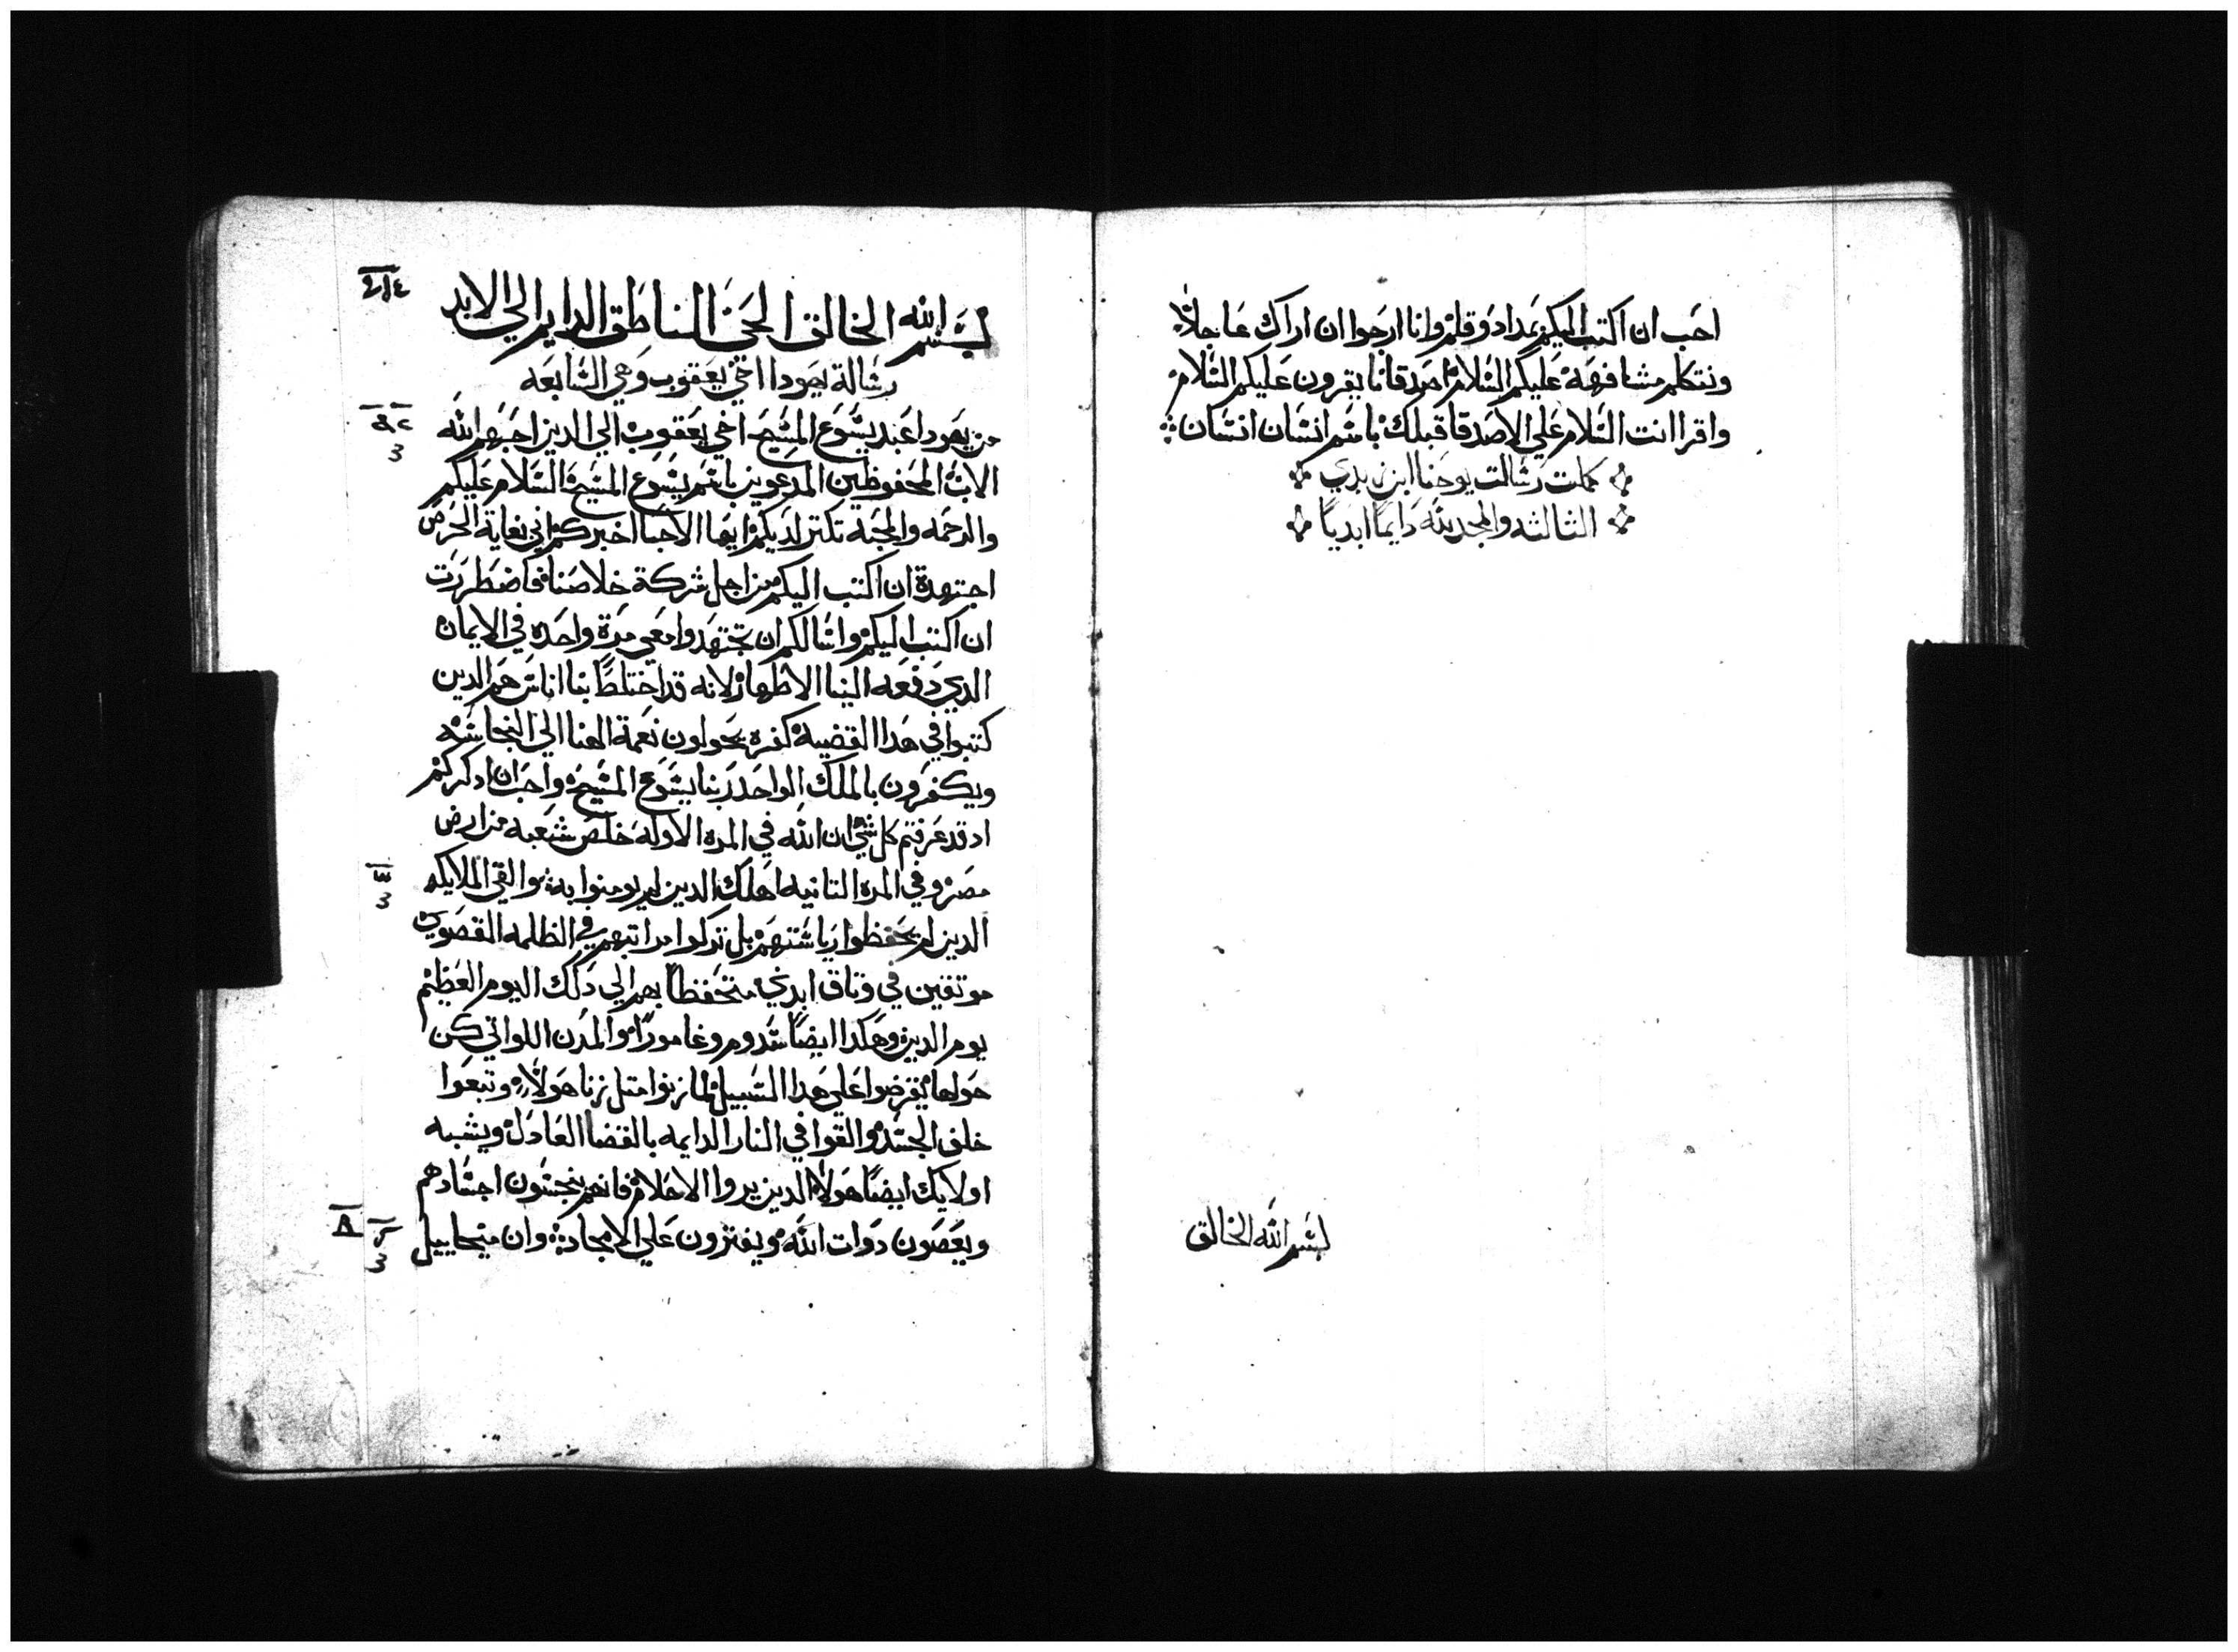 احب ان اكتب اليكم بمداد وقلم وانا ارجوا ان اراك عاجلاً
ونتكلم مشافهة عليكم السلام اصدقانا يقرون عليكم السلام
واقرا انت السلام علي الاصدقا قبلك باسم انسان انسان
كملت رسالت يوحنا ابن زبدي
الثالثه والمجد لله دايماً ابدياً
بسم الله الخالق
بسم الله الخالق الحي الناطق الدايم الي الابد
رسالة يهودا اخي يعقوب وهي السابعه
من يهودا عبد يسوع المسيح اخي يعقوب الي الدين احبهم الله
الاب المحفوظين المدعوين باسم يسوع المسيح السلام عليكم
والرحمه والمحبة تكتر لديكم ايها الاحبا اخبركم اني بغاية الحرص
اجتهدة ان اكتب اليكم من اجل شركة خلاصنا فاضطررت
ان اكتب اليكم واسالكم ان تجتهدوا معي مرة واحده في الايمان
الدي دفعه الينا الاطهار لانه قد اختلط بنا اناس هم الدين
كتبوا في هدا القضية كفره يحولون نعمة الهنا الي النجاسه
ويكفرون بالملك الواحد ربنا يسوع المسيح واحب ان ادكركم
اد قد عرفتم كل شي ان الله في المره الاولة خلص شعبه من ارض
مصر وفي المره التانيه اهلك الدين لم يومنوا به والقي الملايكه
الدين لم يحفظوا رياستهم بل تركوا مراتبهم في الظلمه القصوي
موتقين في وتاق ابدي متحفظاً بهم الي دلك اليوم العظيم
يوم الدين وهكدا ايضاً سدوم وغامورا والمدن اللواتي كن
حولها يقرضوا علي هدا السبيل لما زنوا متل زنا هولاء وتبعوا
خلف الجسد والقوا في النار الدايمه بالقضا العادل ويشبه
اولايك ايضاً هولا الدين يروا الاحلام فانهم ينجسون اجسادهم
ويعصون دوات الله ويفترون علي الامجاد وان ميخاييل